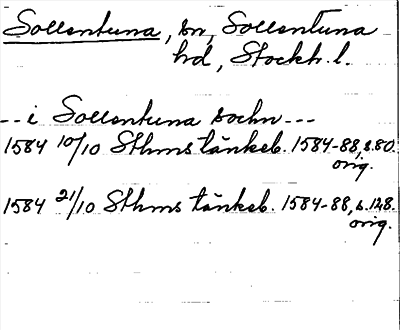 Sollentuna, sn, Sollentuna
hd, Stockh. l.
-- i Sollentuna sochn ---
1584 10/10 Sthms tänkeb. 1584-88, s. 80.
orig.
1584 21/10 Sthms tänkeb. 1584-88, s. 128.
orig.